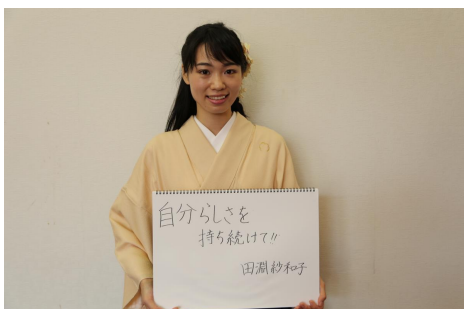 自分らしさを
持ち続けて!!
田淵紗和子